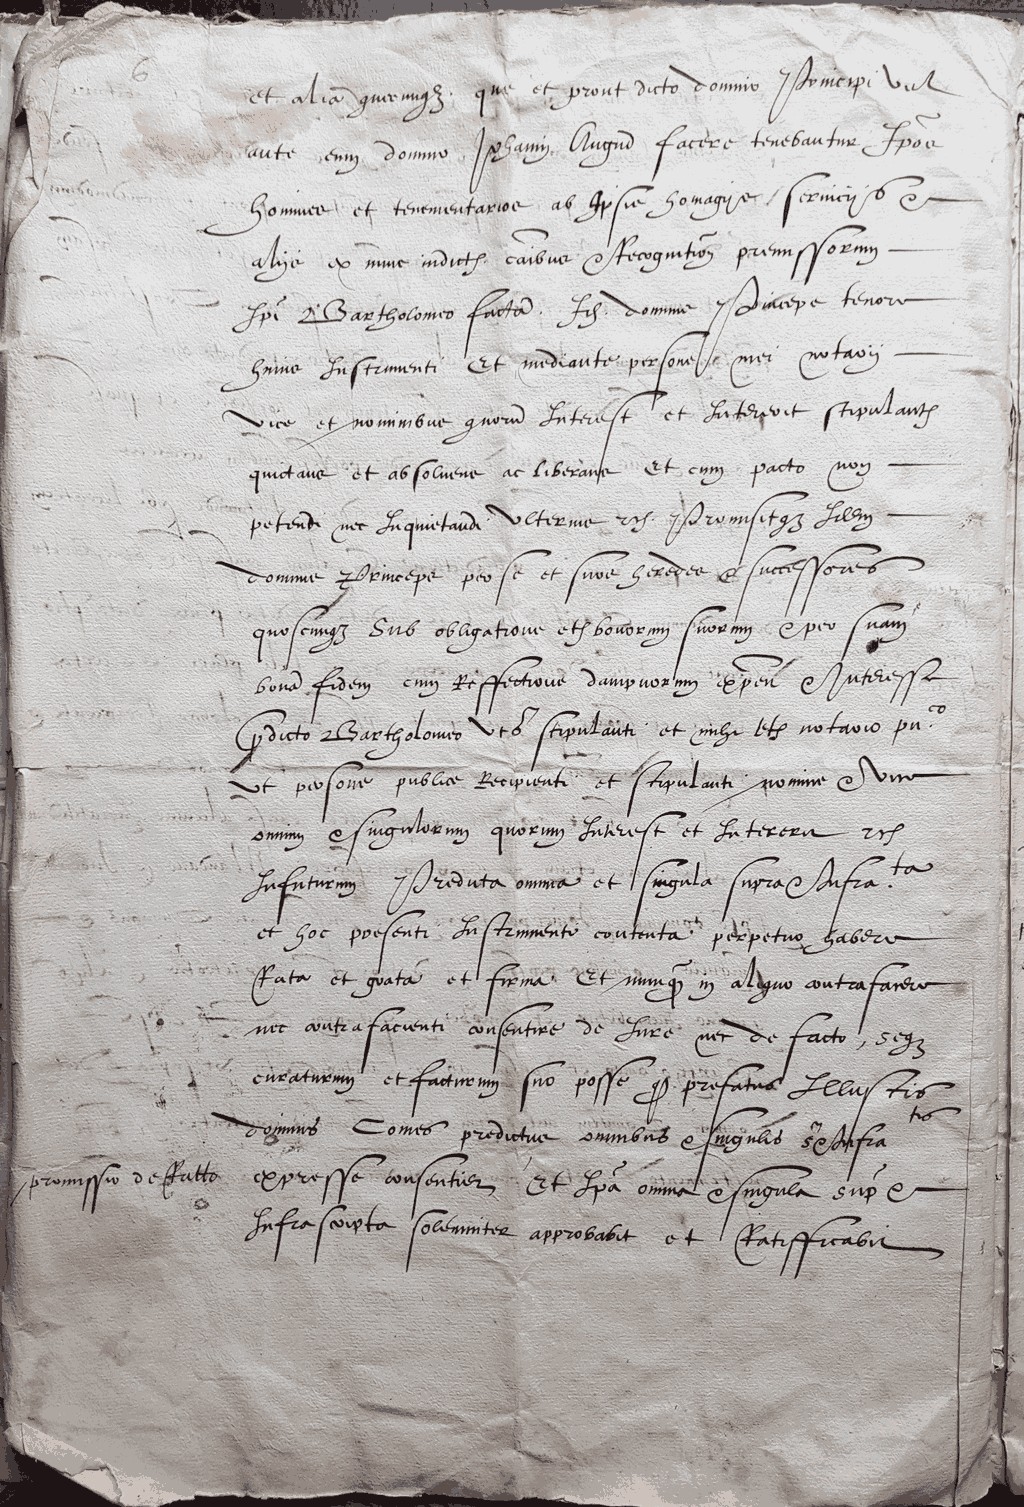 6
et alia quecunqz que et prout dicto domino Principi vel
ante eum domino Johanni Augud facere tenebantur Ipos
homines et tenementarios ab Ipsis homagijs servicijs &
alijs ex nunc indicth caibus & Recognition premissorum
Ipi Bartholomeo facta Ith dominus Princeps tenore
huius Instrumenti Et mediante persone mei notarii
vice et nominibus quoru Interest et Intererit stipulanth
quictans et absolvens ac liberans Et cum pacto non
petendi nec Inquietandi ulterius rth Promisitqz Illm
dominus Princeps pro se et suos heredes & successores
quoscunqz Sub obligatione eth bonorum suorum & per suam
bona fidem cum Reffectione dampnorum expen & Interesse
pdicto Bartholomeo ut s stipulanti et mihi eth notario pu.co
ut persone publice Recipienti et stipulanti nomine & vice
omnium & singulorum quorum Interest et Intererit rth
Infuturum Predicta omnia et singula supra & Infra.ta
et hoc presenti Instrumento contenta perpetuo habere
Rata et grata et firma Et nunq in aliquo contrafacere
nec contrafacienti consentire de Iure nec de facto, seqz
curaturum et facturum suo posse q prefatus Illustris
dominus Comes predictus omnibus & singulis s & Infra tis
promissio de Ratto
expresse consentiet Et Ipa omnia & singula sup &
Infrascripta solemniter approbabit et Ratifficabit